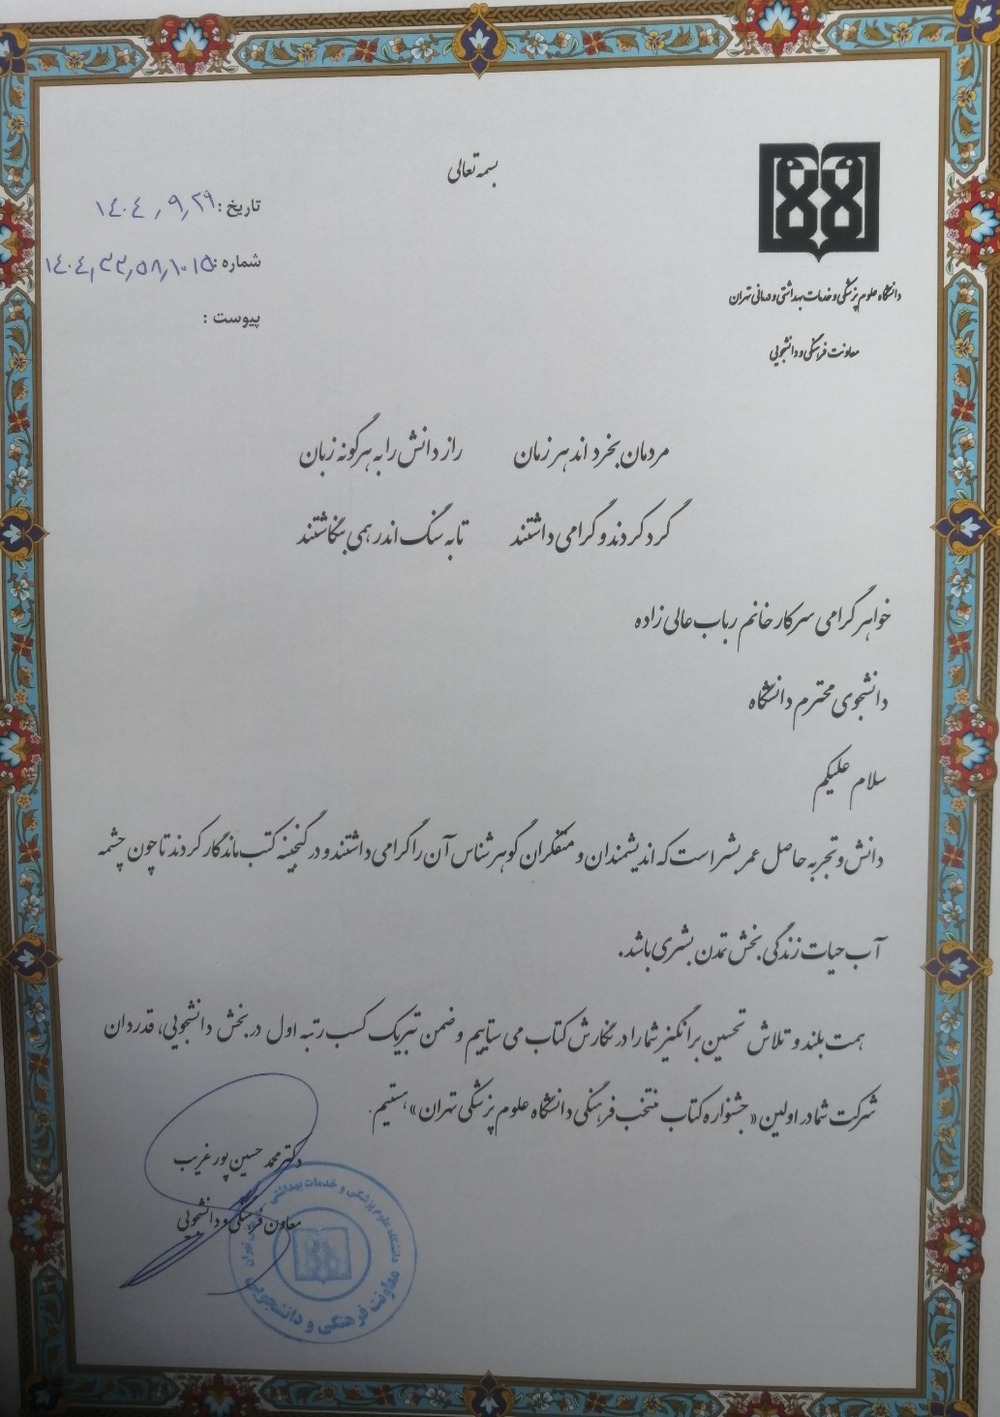 بسمه تعالی
تاریخ : ۱۴۰۴,۹,۲۹
شماره : ۱۴۰۴,۲۲,۵۸,۱۰۱۵
پیوست :
دانشگاه علوم پزشکی و خدمات بهداشتی و درمانی تهران
معاونت فرهنگی و دانشجویی
مردمان بخرد اندر هر زمان راز دانش را به هر گونه زبان
گرد کردند و گرامی داشتند تا به سنگ اندر همی بنگاشتند
خواهر گرامی سرکار خانم رباب عالی زاده
دانشجوی محترم دانشگاه
سلام علیکم
دانش و تجربه حاصل عمر بشر است که اندیشمندان و متفکران گوهر شناس آن را گرامی داشتند و در گنجینه کتب ماندگار کردند تا چون چشمه
آب حیات زندگی بخش تمدن بشری باشد.
همت بلند و تلاش تحسین برانگیز شما را در نگارش کتاب می ستاییم و ضمن تبریک کسب رتبه اول در بخش دانشجویی، قدردان
شرکت شما در اولین «جشنواره کتاب منتخب فرهنگی دانشگاه علوم پزشکی تهران» هستیم.
دکتر محمد حسین پورغریب
معاون فرهنگی و دانشجویی
دانشگاه علوم پزشکی و خدمات بهداشتی
تهران
معاونت فرهنگی و دانشجویی